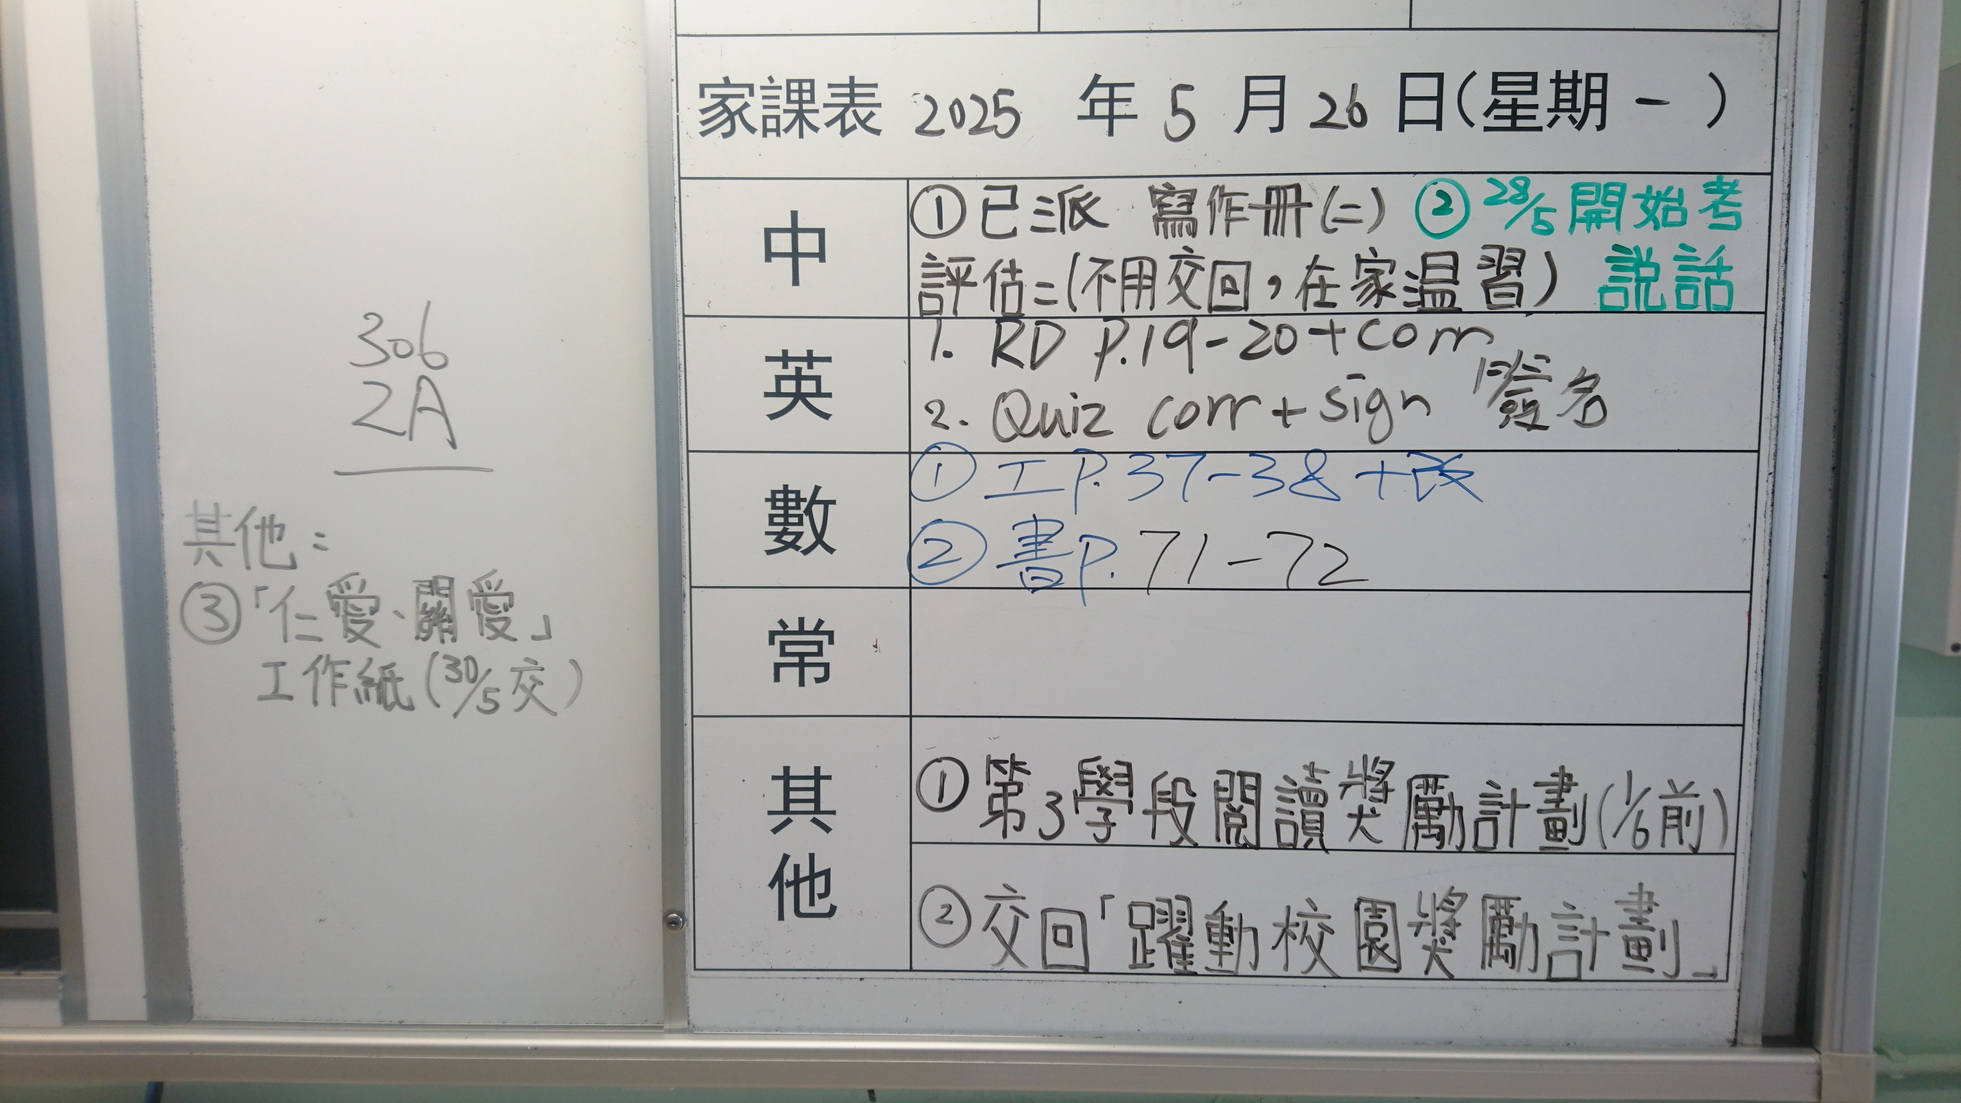 306
2A
其他：
③「仁愛、關愛」
工作紙(30/5交)
家課表 2025 年 5 月 26 日(星期一)
中
①已派 寫作冊(二) ②28/5開始考
評估二(不用交回，在家温習) 說話
英
1. RD P.19-20+corr
2. Quiz corr+sign 簽名
數
①工P.37-38+改
②書P.71-72
常
其他
①第3學段閱讀獎勵計劃(1/6前)
②交回「躍動校園獎勵計劃」